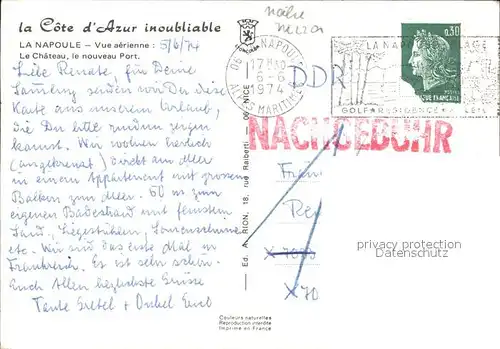 la Côte d'Azur inoubliable
LA NAPOULE — Vue aérienne : 5/6/74
Le Château, le nouveau Port.
Liebe Renate, für Deine
Sammlung senden von der Reise
Karte aus unserem Urlaub,
die Du bitte rundum zeigen
kannst. Wir wohnen herrlich
direkt am Meer
in einem Appartement mit grossem
Balkon zum Meer. 50 m zum
eigenen Badestrand mit feinstem
Sand, Liegestühlen, Sonnenschirmen
etc. Wir sind das erste Mal in
Frankreich. Es ist sehr schön.
Euch Allen herzlichste Grüsse
Tante Gretel + Onkel
nähe
DE LA NAPOULE
17 H 30
6-6
1974
ALPES MARITIMES
LA NAPOULE PLAGE
GOLF
0,30
RÉPUBLIQUE FRANÇAISE
DDR
NACHGEBÜHR
Ed. A. RION, 18, rue Raiberti — 06-NICE
X 70
Couleurs naturelles
Reproduction interdite
Imprimé en France
privacy protection
Datenschutz